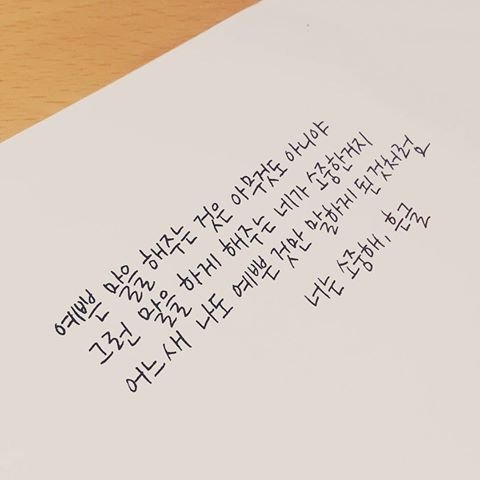 예쁜 말을 해주는 것은 아무것도 아니야
그런 말을 하게 해주는 네가 소중한거지
어느새 나도 예쁜 것만 말하게 된것처럼
너는 소중해, 흔글